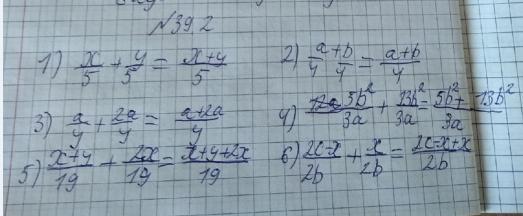 №392
1) x/5 + y/5 = x+y/5
2) a/y + b/y = a+b/y
3) a/y + 2a/y = a+2a/y
4) 5b²/3a + 13b²/3a = 5b²+13b²/3a
5) x+y/19 + 2x/19 = x+y+2x/19
6) 2c-x/2b + x/2b = 2c-x+x/2b